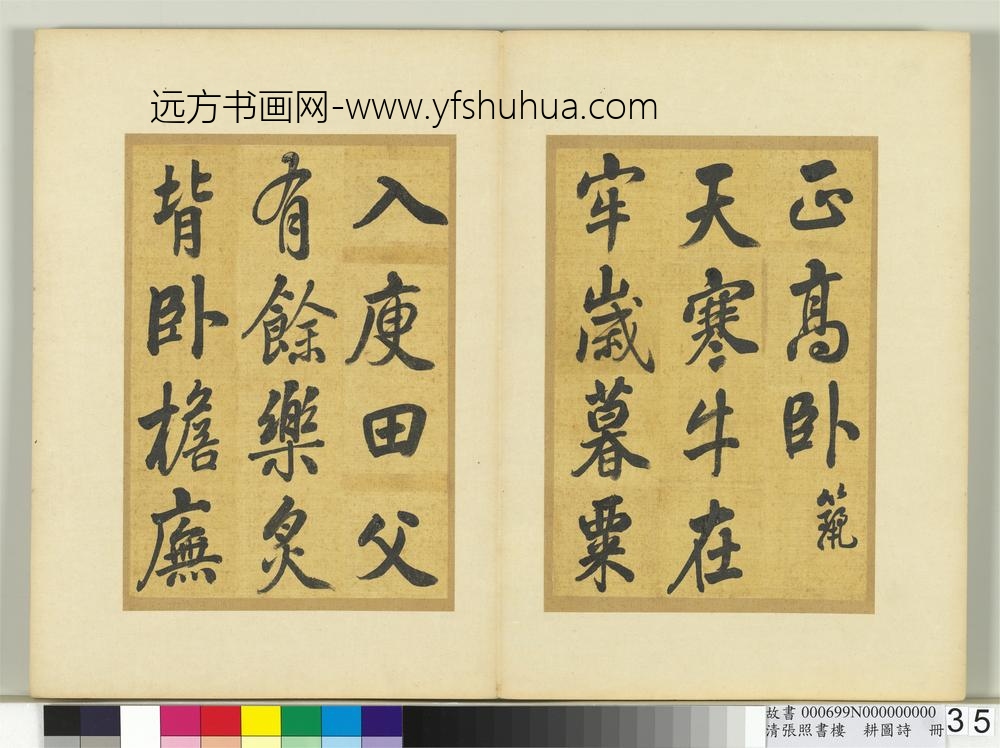 远方书画网-www.yfshuhua.com
正高卧 簸
天寒牛在
牢歲暮粟
入庾田父
有餘樂炙
背卧檐廡
故書 000699N000000000
清張照書樓 耕圖詩 冊
35